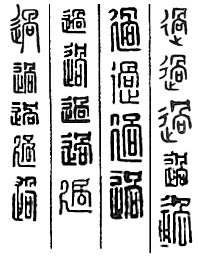 過過過過過
過過過過
過過過過過
過過過過過